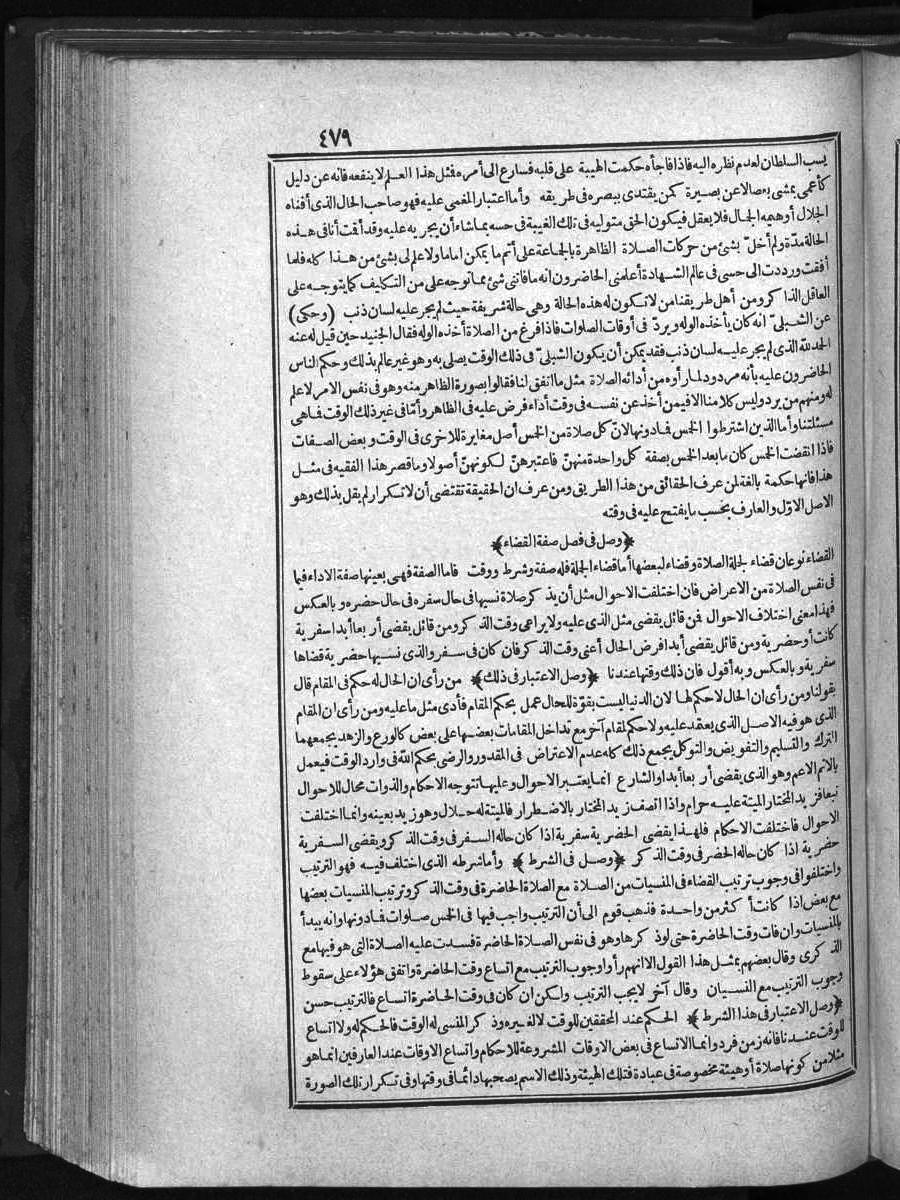 ٤٧٩
يسب السلطان لعدم نظره اليه فاذا فاجأه حكمت الهيبة على قلبه فسارع الى أمره فمثل هذا العلم لا ينفعه فانه عن دليل
كأعمى يمشى به صالا عن بصيرة كمن يقتدى ببصره فى طريقه وأما اعتبار المغمى عليه فهو صاحب الحال الذى أفناه
الجلال أو هيمه الجمال فلا يعقل فيكون الحق متوليه فى تلك الغيبة فى حسه بما شاء أن يجريه عليه وقد أقت أنا فى هذه
الحالة مدّة ولم أخلّ بشئ من حركات الصلاة الظاهرة بالجماعة على أتم ما يمكن اماما ولا علم لى بشئ من هذا كله فلما
أفقت ورددت الى حسى فى عالم الشهادة أعلمنى الحاضرون انه ما فاتنى شئ مما توجه على من التكليف كما يتوجه على
العاقل الذاكر ومن أهل طريقنا من لا تكون له هذه الحالة وهى حالة شريفة حيث لم يجر عليه لسان ذنب (وحكى)
عن الشبلىّ انه كان يأخذه الوله ويردّ فى أوقات الصلوات فاذا فرغ من الصلاة أخذه الوله فقال الجنيد حين قيل له عنه
الحمد لله الذى لم يجر عليه لسان ذنب فقد يمكن أن يكون الشبلىّ فى ذلك الوقت يصلى به وهو غير عالم بذلك وحكم الناس
الحاضرون عليه بأنه مردود لما رأوه من أدائه الصلاة مثل ما اتفق لنا فقالوا بصورة الظاهر منه وهو فى نفس الامر لا علم
له ومنهم من يرد وليس كلامنا الا فيمن أخذ عن نفسه فى وقت أداء فرض عليه فى الظاهر وأمّا فى غير ذلك الوقت فما هى
مسئلتنا وأما الذين اشترطوا الخمس فما دونها لانّ كل صلاة من الخمس أصل مغايرة للاخرى فى الوقت وبعض الصفات
فاذا انقضت الخمس كان ما بعد الخمس بصفة كل واحدة منهنّ فاعتبرهنّ لكونهنّ أصولا وما قصر هذا الفقيه فى مثل
هذا فانها حكمة بالغة لمن عرف الحقائق من هذا الطريق ومن عرف ان الحقيقة تقتضى أن لا تكرار لم يقل بذلك وهو
الاصل الاوّل والعارف بحسب ما يفتح عليه فى وقته
﴿وصل فى فصل صفة القضاء﴾
القضاء نوعان قضاء لجملة الصلاة وقضاء لبعضها أما قضاء الجملة فله صفة وشرط ووقت فاما الصفة فهى بعينها صفة الاداء فيما
فى نفس الصلاة من الاعراض فان اختلفت الاحوال مثل أن يذكر صلاة نسيها فى حال سفره فى حال حضره وبالعكس
فهذا معنى اختلاف الاحوال فمن قائل يقضى مثل الذى عليه ولا يراعى وقت الذكر ومن قائل يقضى أربعا أبدا سفرية
كانت أو حضرية ومن قائل يقضى أبدا فرض الحال أعنى وقت الذكر فان كان فى سفر والذى نسيها حضرية قضاها
سفرية وبالعكس وبه أقول فان ذلك وقتها عندنا ﴿وصل الاعتبار فى ذلك﴾ من رأى ان الحال له حكم فى المقام قال
بقولنا ومن رأى ان الحال لا حكم لها لان الدنيا ليست بقوّة للحال عمل بحكم المقام فأدى مثل ما عليه ومن رأى ان المقام
الذى هو فيه الاصل الذى يعتمد عليه ولا حكم لمقام آخر مع تداخل المقامات بعضها على بعض كالورع والزهد يجمعهما
الترك والتسليم والتفويض والتوكل يجمع ذلك كله عدم الاعتراض فى المقدور والرضى بحكم الله فى وارد الوقت فيعمل
بالاتم الاعم وهو الذى يقضى أربعا أبدا والشارع انما يعتبر الاحوال وعليها تتوجه الاحكام والذوات محال للاحوال
تبعا فزيد المختار الميتة عليه حرام واذا اتصف زيد المختار بالاضطرار فالميتة له حلال وهو زيد بعينه وانما اختلفت
الاحوال فاختلفت الاحكام فلهذا يقضى الحضرية سفرية اذا كان حاله السفر فى وقت الذكر ويقضى السفرية
حضرية اذا كان حاله الحضر فى وقت الذكر ﴿وصل فى الشرط﴾ وأما شرطه الذى اختلف فيه فهو الترتيب
واختلفوا فى وجوب ترتيب القضاء فى المنسيات من الصلاة مع الصلاة الحاضرة فى وقت الذكر وترتيب المنسيات بعضها
مع بعض اذا كانت أكثر من واحدة فذهب قوم الى أن الترتيب واجب فيها فى الخمس صلوات فما دونها وانه يبدأ
بالمنسيات وان فات وقت الحاضرة حتى لو ذكرها وهو فى نفس الصلاة الحاضرة فسدت عليه الصلاة التى هو فيها مع
الذكرى وقال بعضهم بمثل هذا القول الا انهم رأوا وجوب الترتيب مع اتساع وقت الحاضرة واتفق هؤلاء على سقوط
وجوب الترتيب مع النسيان وقال آخر لا يجب الترتيب ولكن ان كان فى وقت الحاضرة اتساع فالترتيب حسن
﴿وصل الاعتبار فى هذا الشرط﴾ الحكم عند المحققين للوقت لا لغيره وذكر المنسى له الوقت فالحكم له ولا اتساع
للوقت عندنا فانه زمن فرد وانما الاتساع فى بعض الاوقات المشروعة للاحكام واتساع الاوقات عند العارفين انما هو
مثلا من كونها صلاة أو هيئة مخصوصة فى عبادة فتلك الهيئة وذلك الاسم يصحبها دائما فى وقتها وفى تكرار تلك الصورة